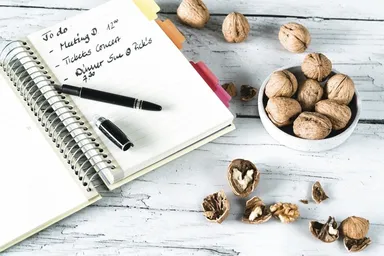 To do
- Meeting D 12⁰⁰
- Tickets Concert
- Dinner Sue @ Rick's
7³⁰